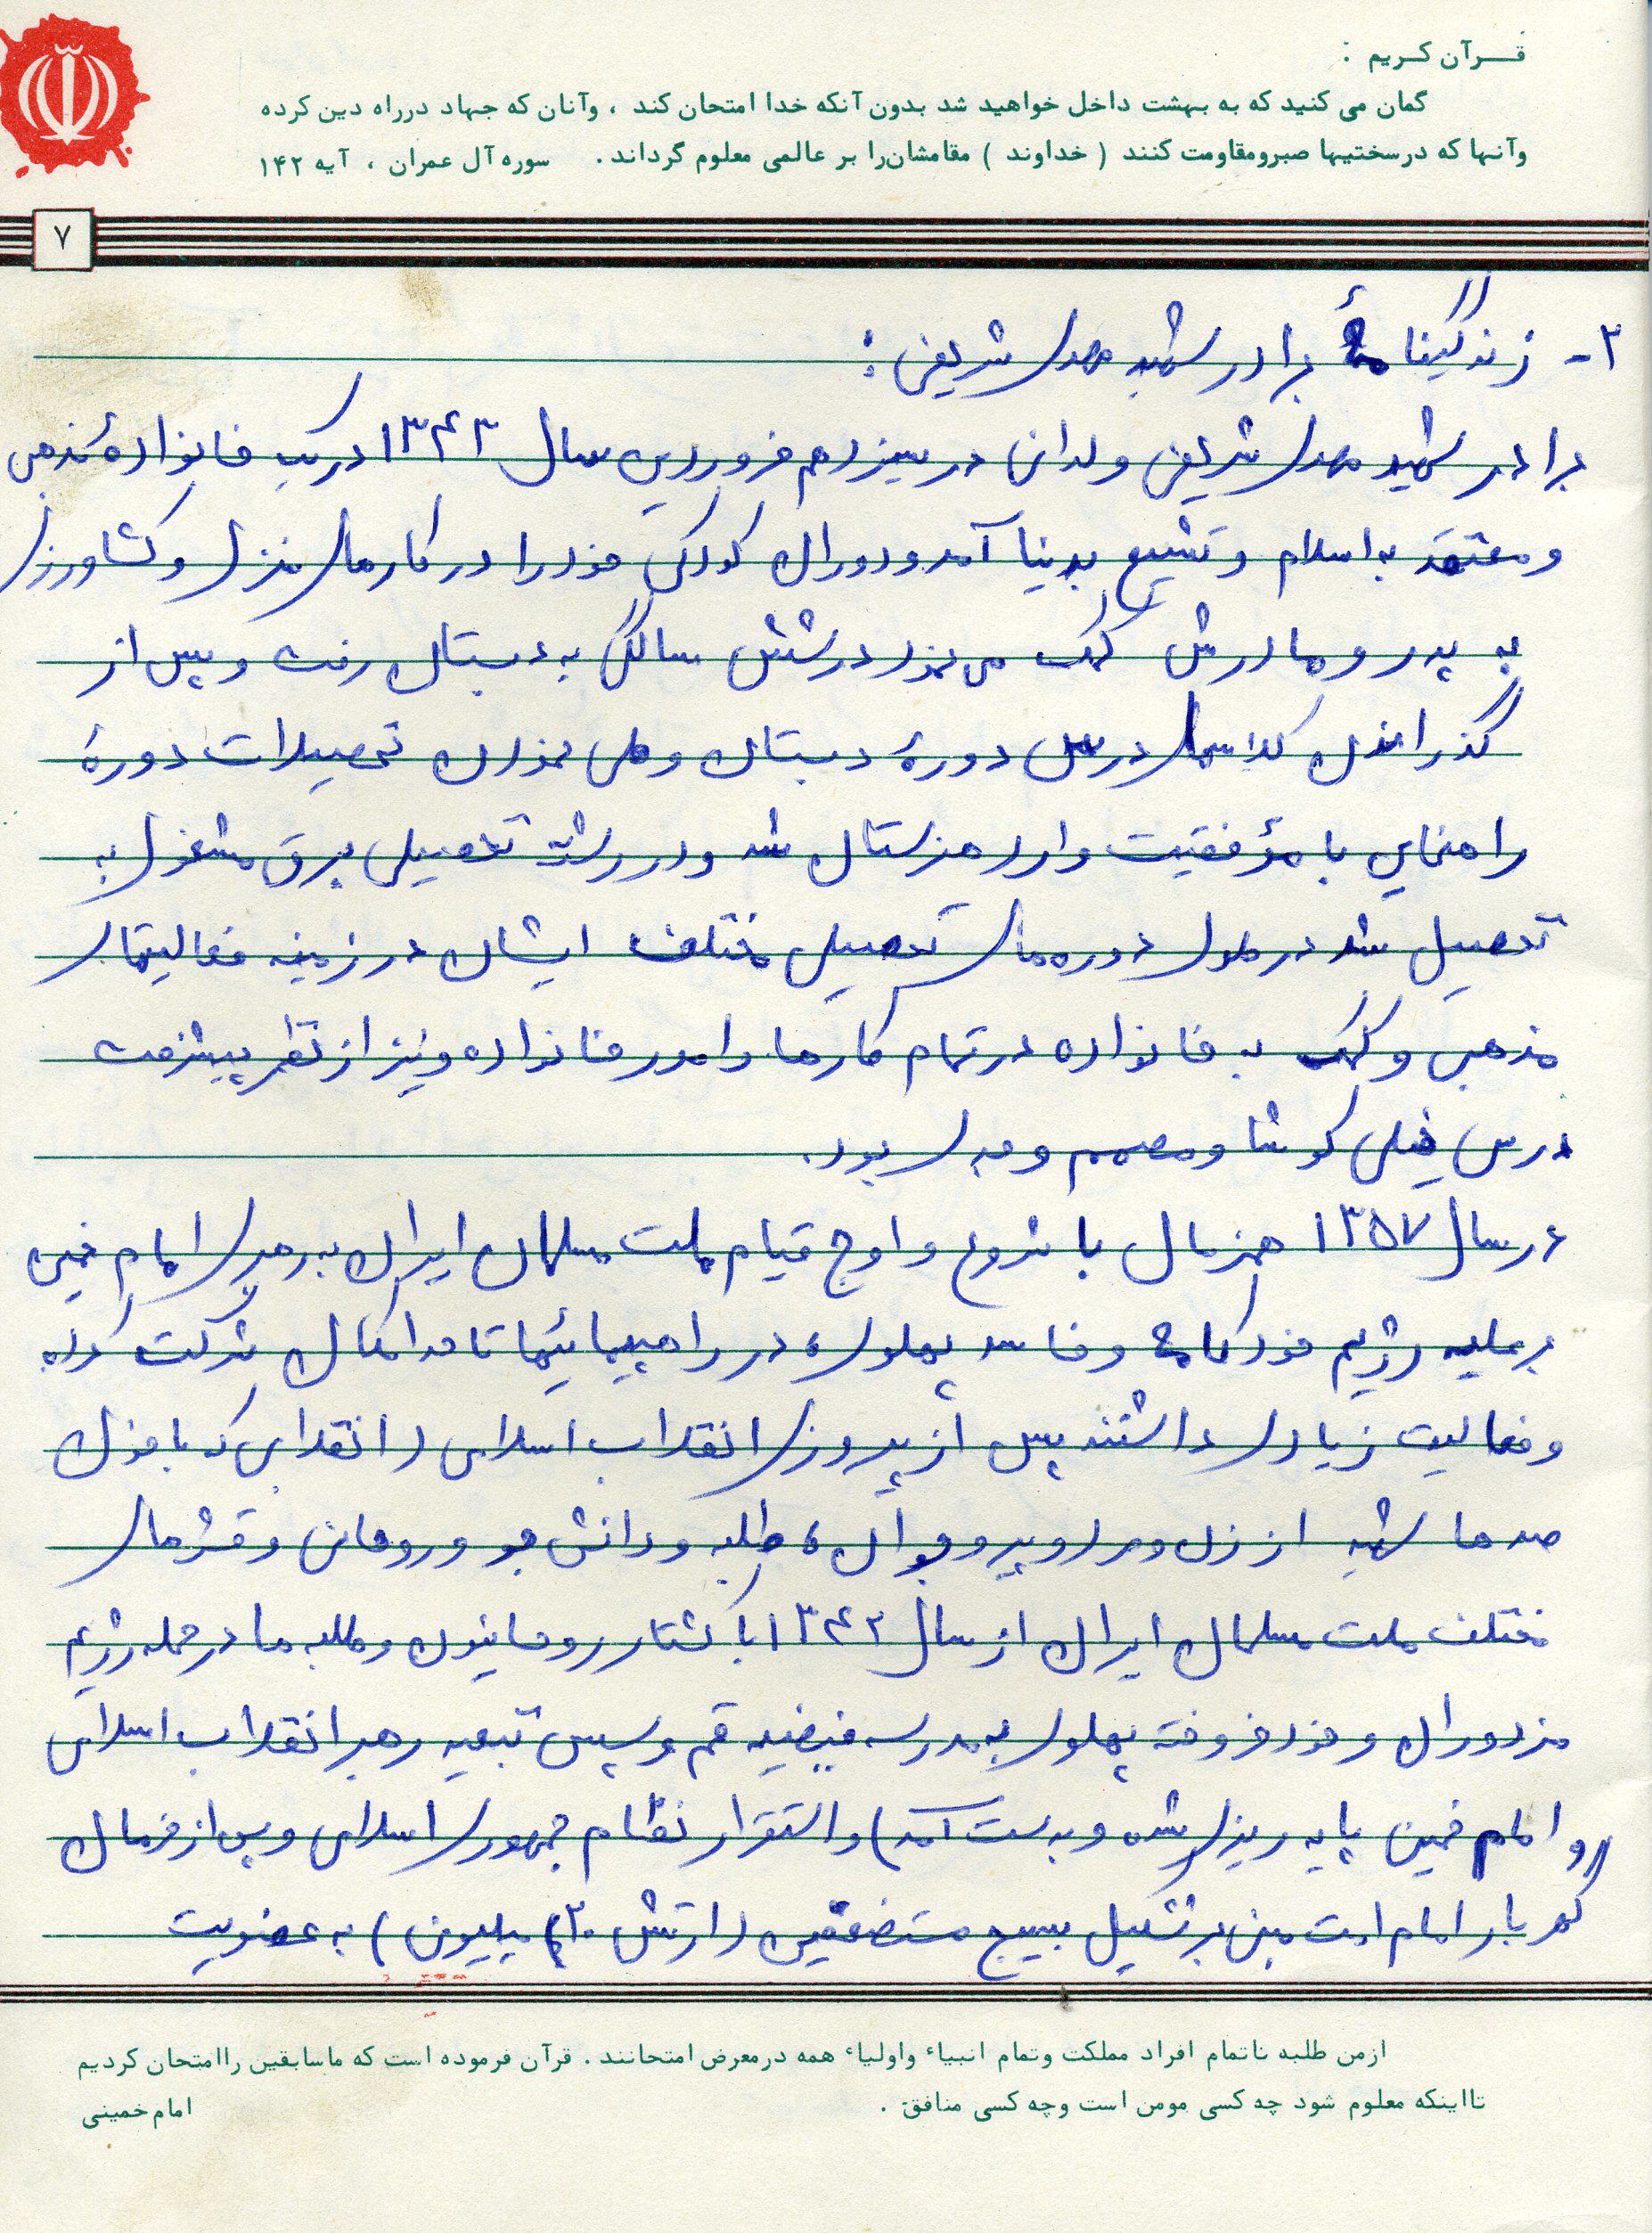 قـــرآن کـریم :
گمان می کنید که به بهشت داخل خواهید شد بدون آنکه خدا امتحان کند ، وآنان که جهاد درراه دین کرده
وآنها که درسختیها صبرومقاومت کنند ( خداوند ) مقامشان‌را بر عالمی معلوم گرداند . سوره آل عمران ، آیه ۱۴۲
۷
۲- زندگینامهٔ برادر شهید مهدی شریفی :
برادر شهید مهدی شریفی ولدانی در سیزدهم فروردین سال ۱۳۴۳ در یک خانوادهٔ مذهبی
و معتقد به اسلام و تشیع بدنیا آمد و دوران کودکی خود را در کارهای منزل و کشاورزی
به پدر و مادرش کمک می نمود در شش سالگی به دبستان رفت و پس از
گذراندن کلاسهای درس دورهٔ دبستان و طی نمودن تحصیلات دورهٔ
راهنمایی با مؤفقیت وارد هنرستان شد و در رشته تحصیلی برق مشغول به
تحصیل شد در طول دوره‌های تحصیلی مختلف ایشان در زمینه فعالیتهای
مذهبی و کمک به خانواده در تمام کارها و امور خانواده و نیز از نظر پیشرفت
درس خیلی کوشا و مصمم و جدی بود.
در سال ۱۳۵۷ همزمان با شروع و اوج قیام ملت مسلمان ایران به رهبری امام خمینی
بر علیه رژیم خودکامه و فاسد پهلوی، در راهپیمائیها تا حد امکان شرکت کرده
و فعالیت زیادی داشتند پس از پیروزی انقلاب اسلامی (انقلابی که با خون
صدها شهید از زن و مرد و پیر و جوان، طلبه و دانش جو و روحانی و قشرهای
مختلف ملت مسلمان ایران از سال ۱۳۴۲ با کشتار روحانیون و طلبه ها در حمله رژیم
مزدوران و خود فروخته پهلوی به مدرسه فیضیه قم و سپس تبعید رهبر انقلاب اسلامی
و امام خمینی پایه ریزی شده و بدست آمد) و استقرار نظام جمهوری اسلامی و پس از فرمان
گهربار امام امت مبنی بر تشکیل بسیج مستضعفین (ارتش ۲۰ میلیونی) به عضویت
ازمن طلبه تاتمام افراد مملکت وتمام انبیاء واولیاء همه درمعرض امتحانند . قرآن فرموده است که ماسابقین راامتحان کردیم
تااینکه معلوم شود چه کسی مومن است وچه کسی منافق . امام‌خمینی